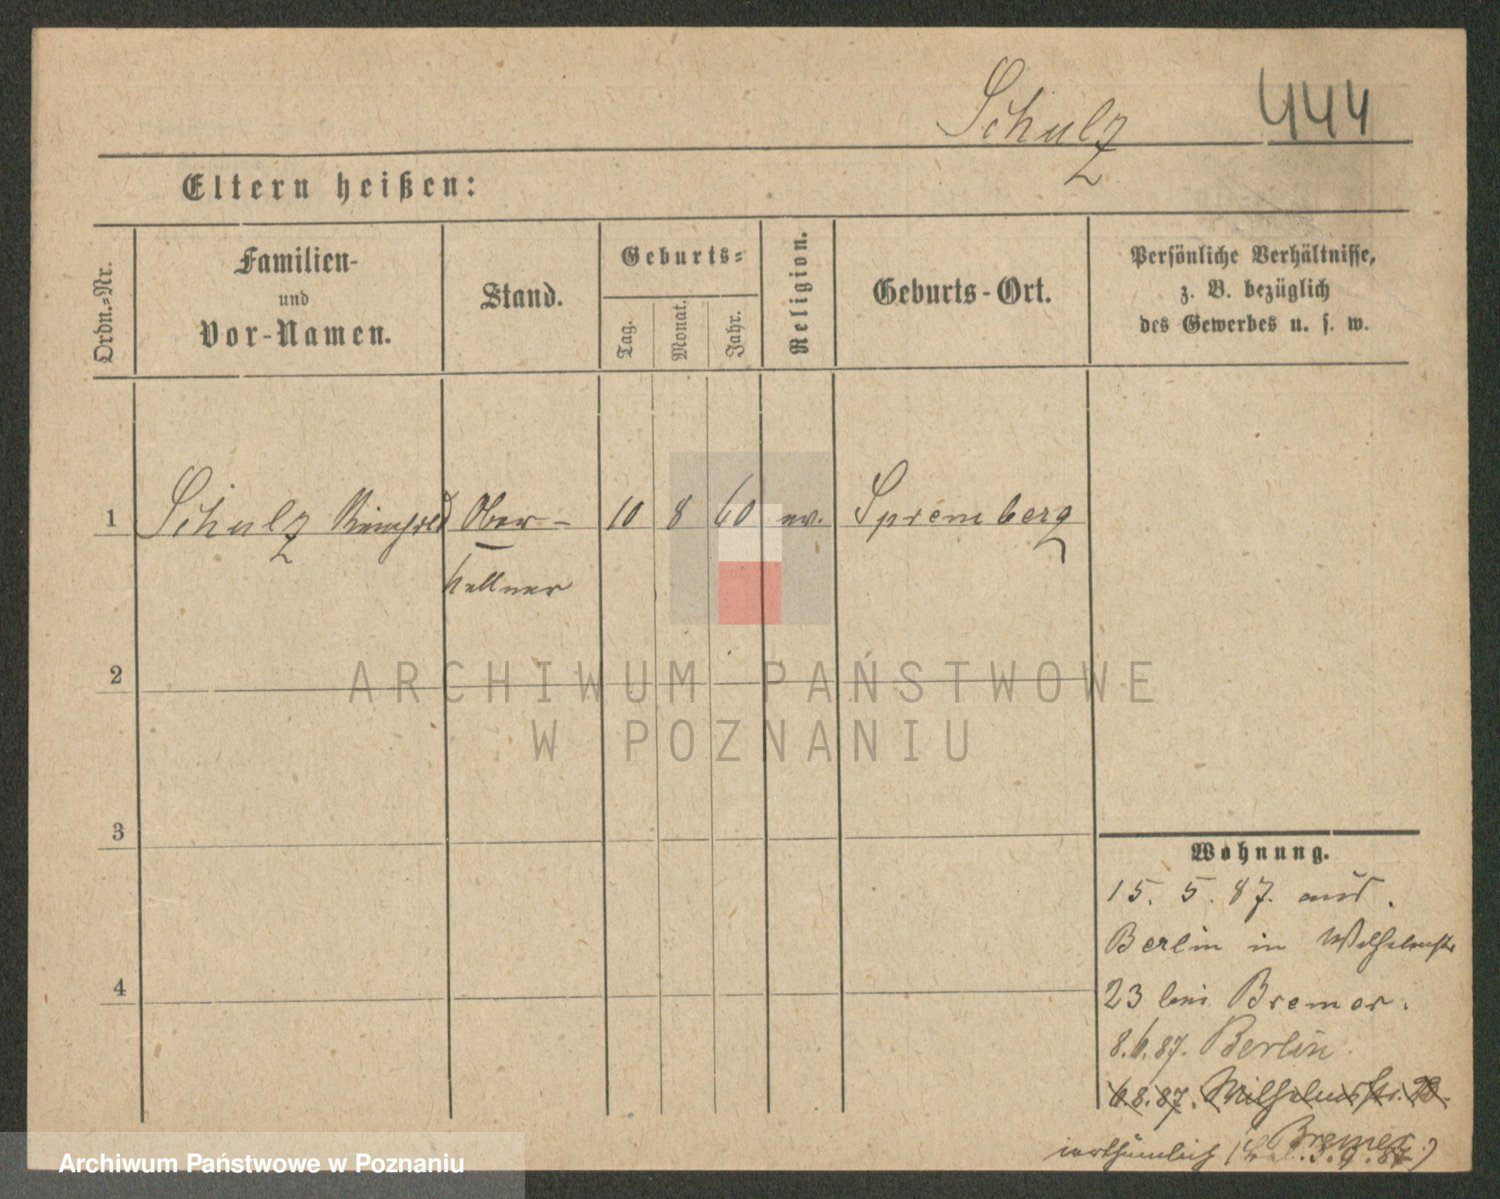 Schulz 444
Eltern heißen:
Ordn.=Nr.
Familien-
und
Vor-Namen.
Stand.
Geburts=
Tag.
Monat.
Jahr.
Religion.
Geburts-Ort.
Persönliche Verhältnisse,
z. B. bezüglich
des Gewerbes u. s. w.
1 Schulz Ober- 10 8 60 ev. Spremberg
kellner
2
ARCHIWUM PAŃSTWOWE
W POZNANIU
3
4
Wohnung.
15. 5. 87. aus
Berlin in Wilhelmstr
23 bei Bremer.
8.6.87. Berlin
6.8.87. Wilhelmstr.
Bremer
irrthümlich
Archiwum Państwowe w Poznaniu